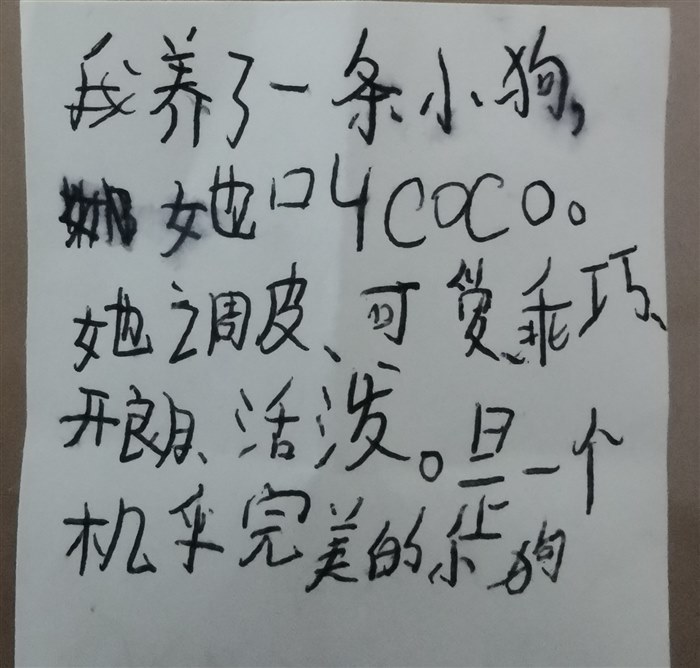 我养了一条小狗,
她叫COCO。
她调皮、可爱、乖巧、
开朗、活泼。是一个
机乎完美的小狗